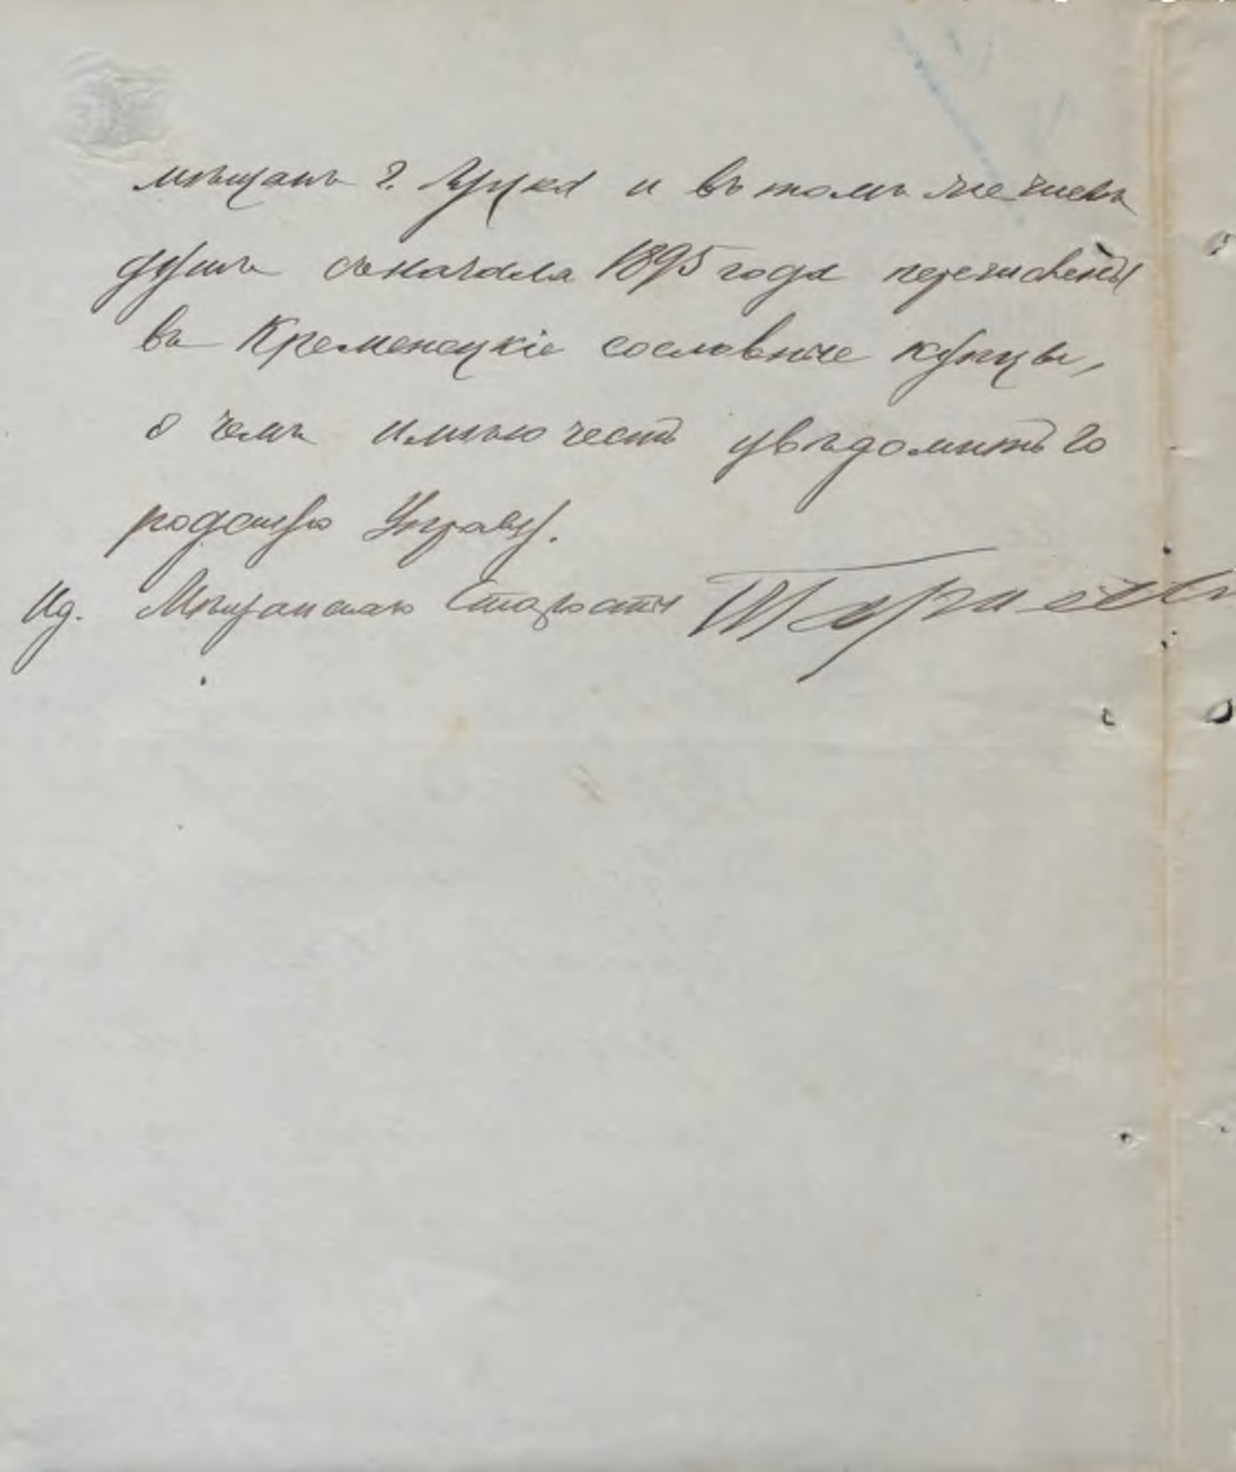 мѣщанъ г. Луцка и въ томъ же числѣ
душъ съ начала 1895 года перечислены
въ Кременецкіе сословные купцы,
о чемъ имѣю честь увѣдомить Го
родскую Управу.
Ид. Мѣщанскаго Старосты